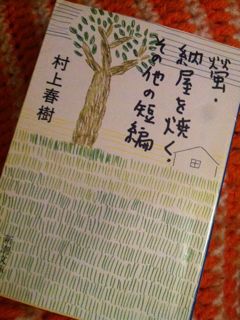 螢・
納屋を焼く・
その他の短編
村上春樹